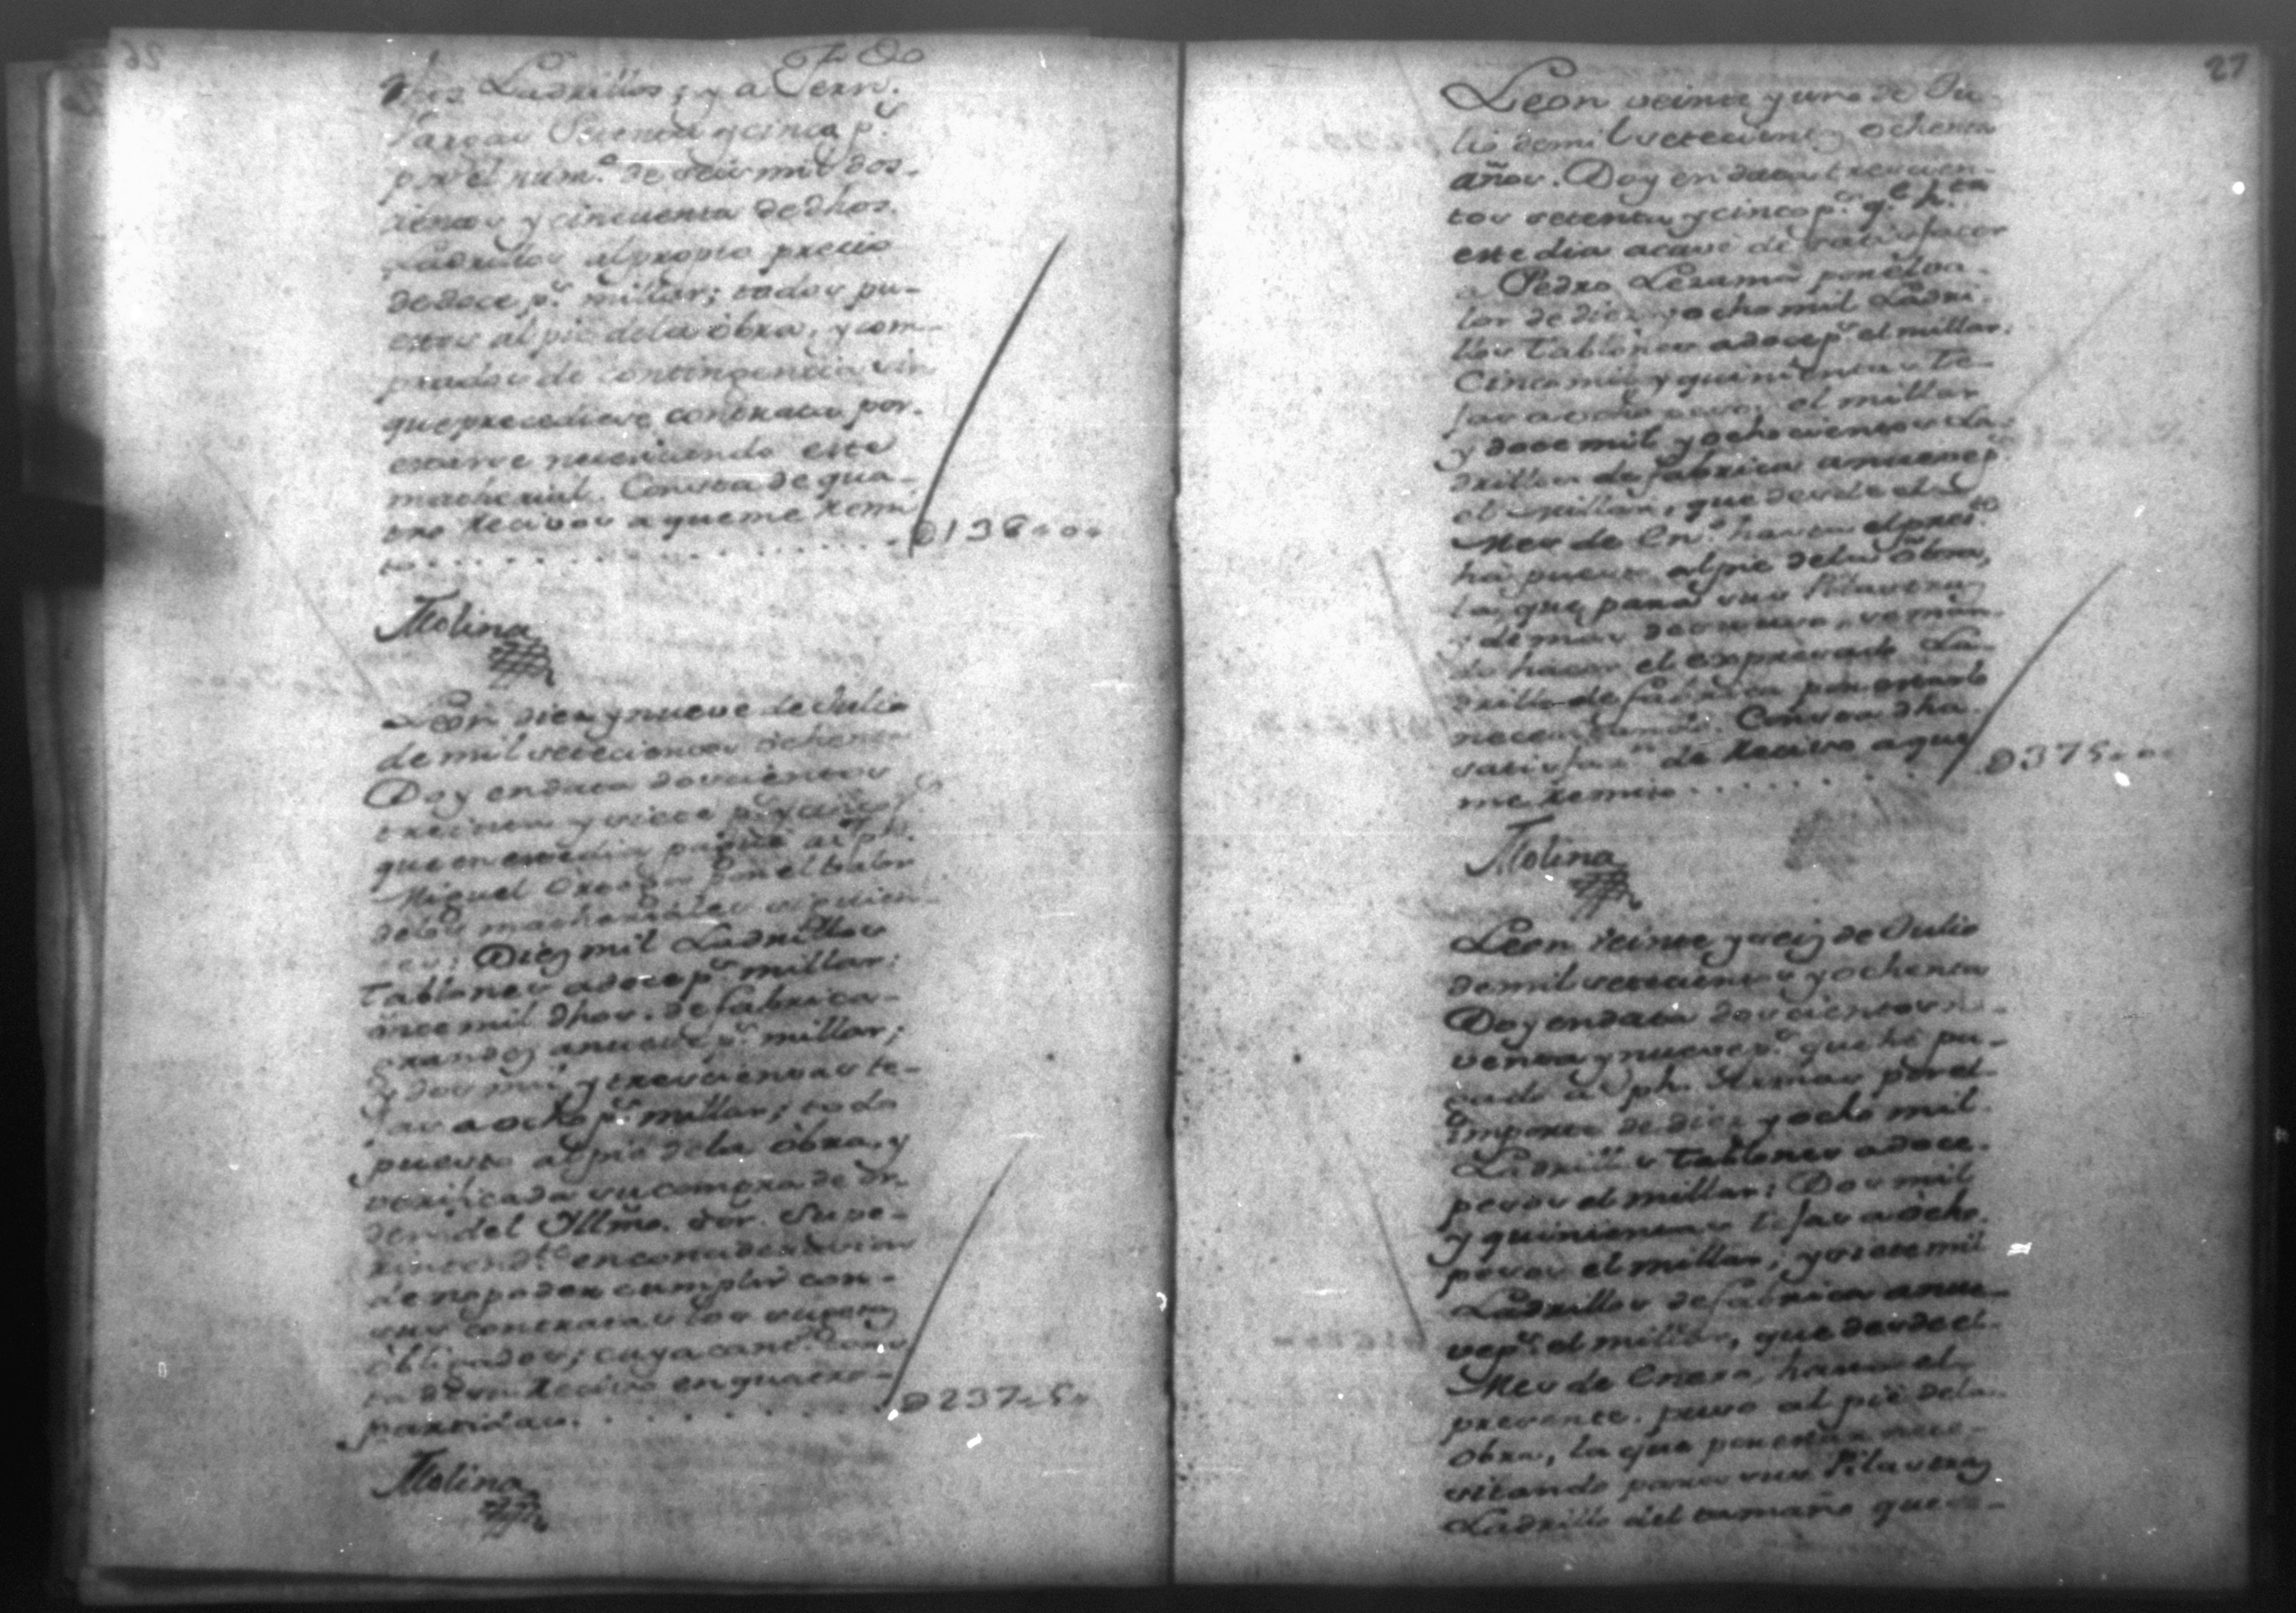 dhos Ladrillos; y a Fern.
Vargas Setenta y cinco p.s
por el num.o de seis mil dos-
cientos y cincuenta de dhos.
Ladrillos al propio precio
de doce p.s millar; todos pu-
estos al pie de la obra, y com-
prados de contingencia sin
que precediese contrata por-
estarse necesitando este
matherial. Consta de qua-
tro Recivos a que me remi
to . . . . . . . . . . D138 " 0 "
Molina
Leon diez y nueve de Julio
de mil setecientos ochenta
Doy en data doscientos
treinta y siete p.s y cinco r.s
que en este dia pagué a Jph.
Miguel por el valor
de los matheriales siguien-
tes; Diez mil Ladrillos
Tablones a doce p.s millar:
once mil dhos. de fabrica-
grandes a nueve p.s millar;
y dos mil y trescientas te-
jas a ocho p.s millar; todo
puesto al pie de la obra, y
verificada su compra de or-
den del Illmo. Sor. Supe-
rintend.te en consideracion
de no poder cumplir con-
sus contratas los sugetos
obligados; cuya cant.d cons
ta de un Recivo en quatro-
partidas. . . . . . . . D237 " 5 "
Molina
27
Leon veinte y uno de Ju-
lio de mil setecientos ochenta
años. Doy en data trescien-
tos setenta y cinco p.s q.e h.ta
este dia acavé de satisfacer
a Pedro Lezama por el va-
lor de diez y ocho mil Ladri-
llos Tablones a doce p.s el millar:
Cinco mil y quinientas Te-
jas a ocho pesos el millar
y doce mil y ochocientos La-
drillos de fabrica a nueve p.s
el millar, que desde el
Mes de En.o hasta el pres.te
ha puesto al pie de la Obra,
la que para sus Pilastras
y demas de su uso, se man-
do hacer el expresado La-
drillo de fabrica por estarlo
necesitando. Consta dha
satisfaz.on de Recivo a que
me remito . . . . . . D375 " 0 "
Molina
Leon veinte y seis de Julio
de mil setecientos y ochenta
Doy en data doscientos no-
venta y nueve p.s que he pa-
gado a Jph. Armas por el
importe de diez y ocho mil
Ladrillos Tablones a doce
pesos el millar: Dos mil
y quinientas tejas a ocho
pesos el millar; y siete mil
Ladrillos de fabrica a nue-
ve p.s el millar, que desde el
Mes de Enero, hasta el
presente. puso al pie de la
obra, la que por estar nece-
sitando para sus Pilastras
Ladrillo del tamaño que se-